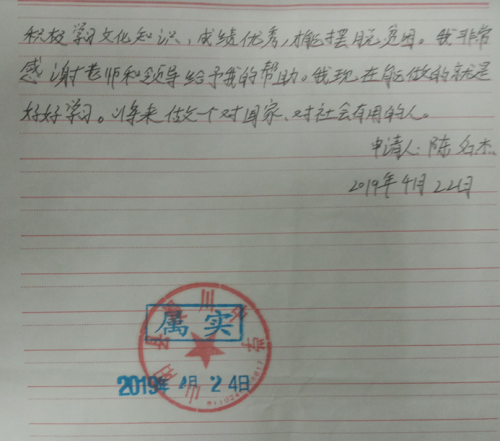 积极学习文化知识，成绩优秀，才能摆脱贫困。我非常
感谢老师和领导给予我的帮助。我现在能做的就是
好好学习。将来做一个对国家、对社会有用的人。
申请人：陈名杰
2019年4月22日
属实
2019年4月24日